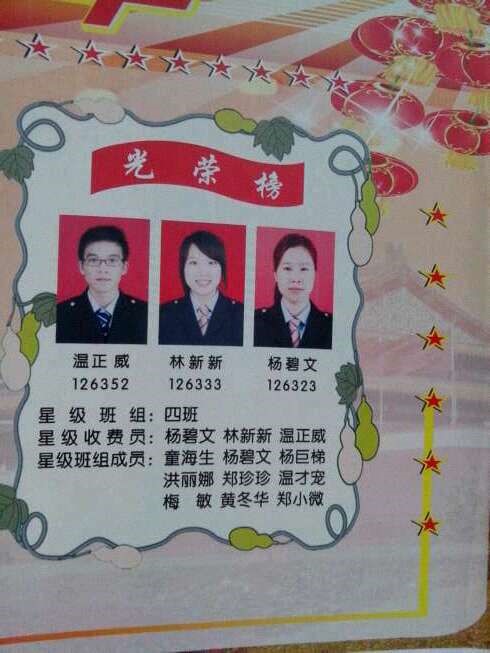 光荣榜
温正威 林新新 杨碧文
126352 126333 126323
星级班组：四班
星级收费员：杨碧文 林新新 温正威
星级班组成员：童海生 杨碧文 杨巨梯
洪丽娜 郑珍珍 温才宠
梅敏 黄冬华 郑小微